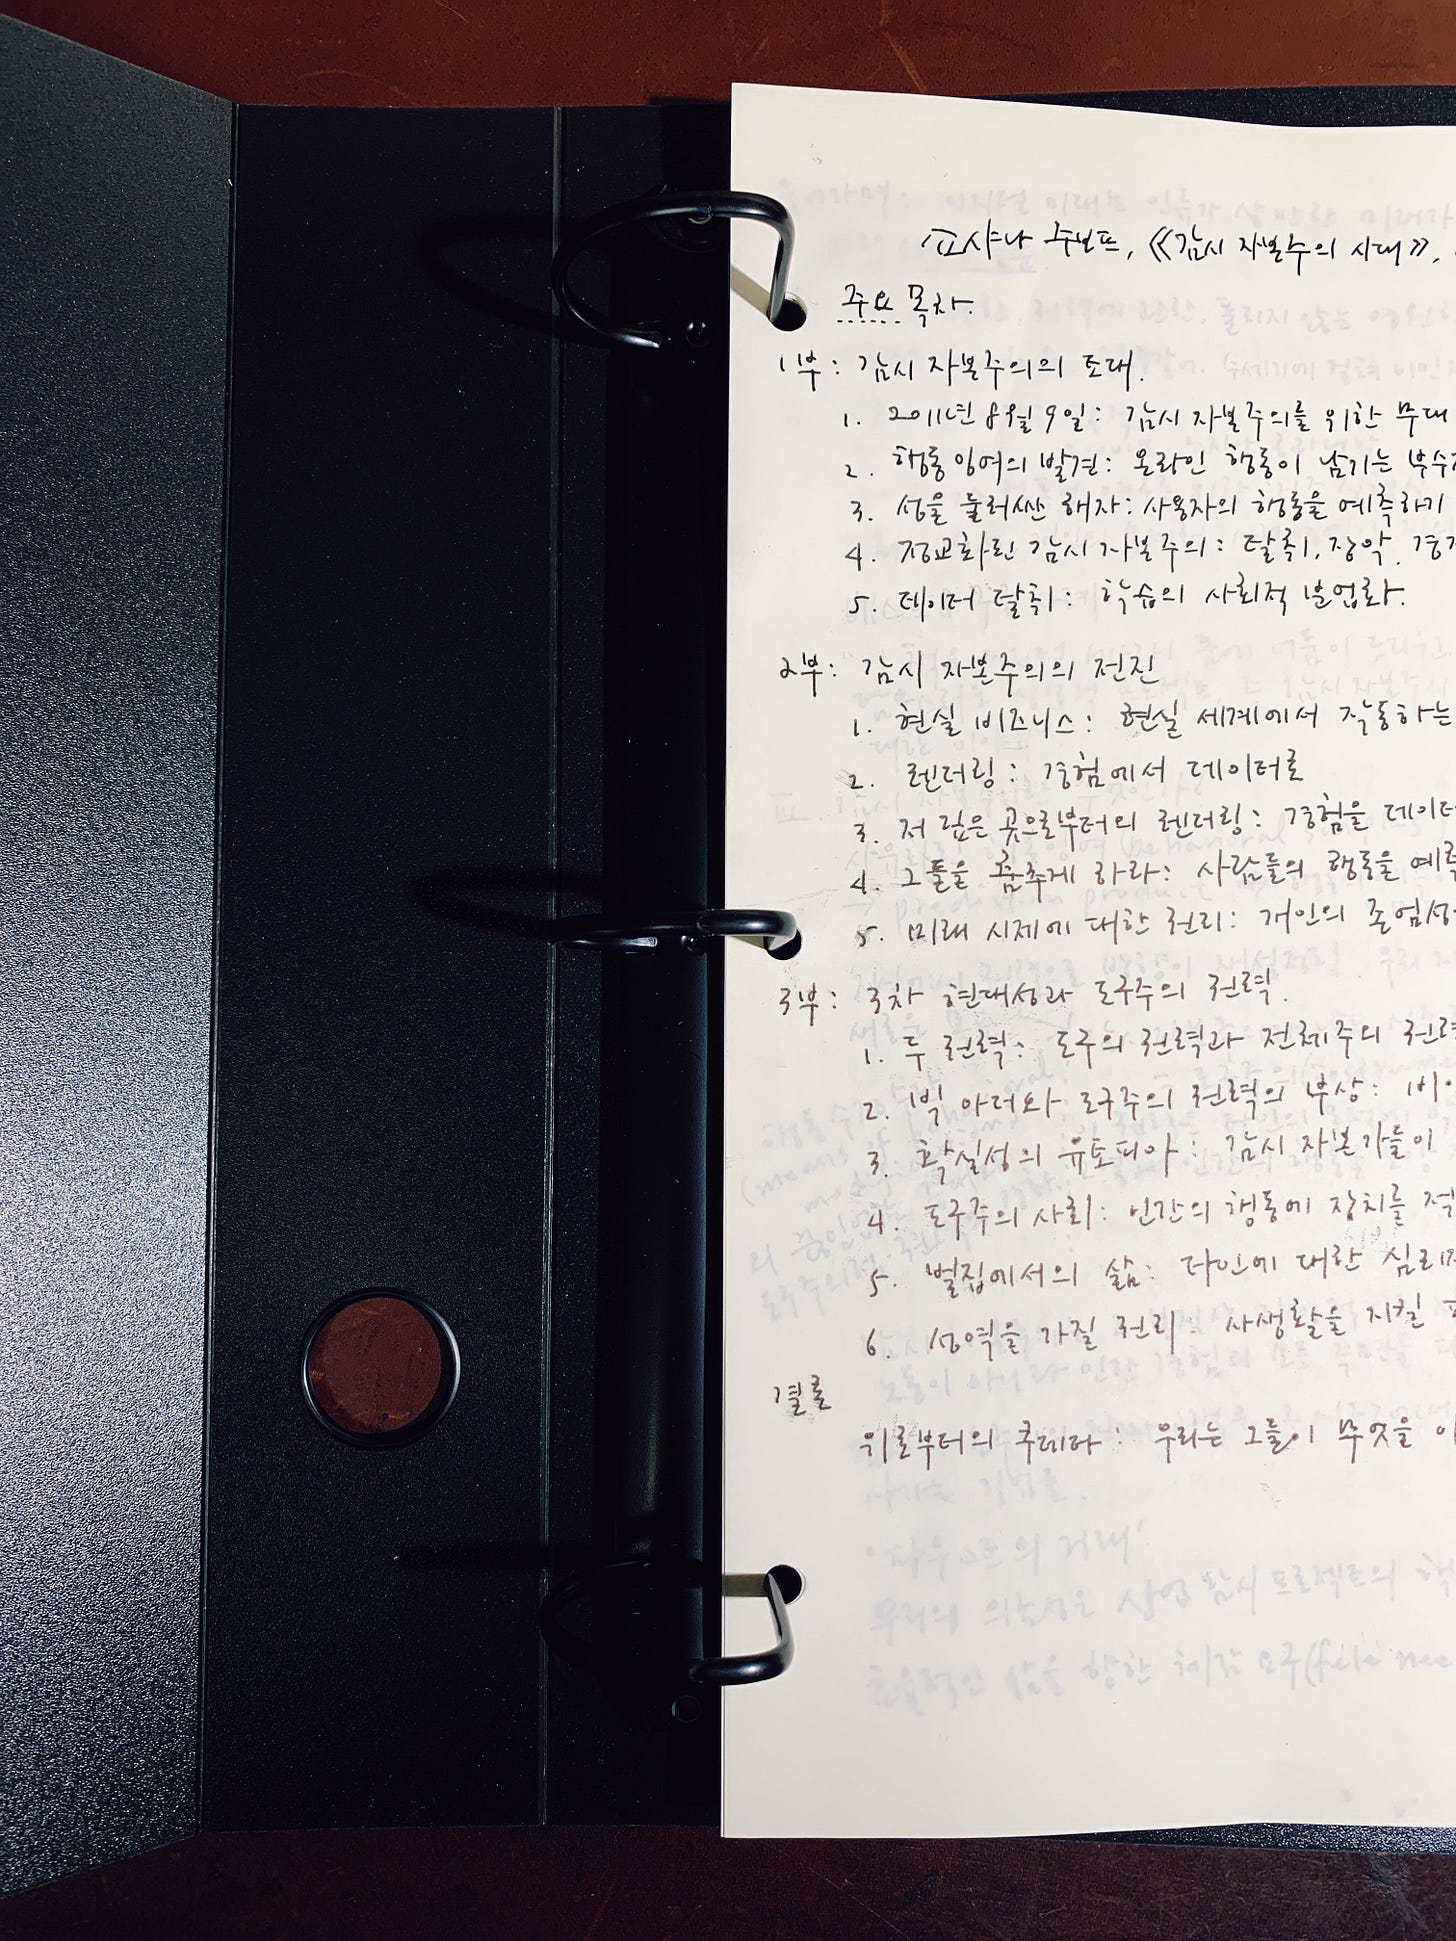 쇼샤나 주보프, 《감시 자본주의 시대》,
주요 목차.
1부: 감시 자본주의의 토대.
1. 2011년 8월 9일: 감시 자본주의를 위한 무대
2. 행동 잉여의 발견: 온라인 행동이 남기는 부수
3. 성을 둘러싼 해자: 사용자의 행동을 예측하기
4. 정교화된 감시 자본주의: 탈취, 장악, 경
5. 데이터 탈취: 학습의 사회적 분업화.
2부: 감시 자본주의의 전진
1. 현실 비즈니스: 현실 세계에서 작동하는
2. 렌더링: 경험에서 데이터로
3. 저 깊은 곳으로부터의 렌더링: 경험을 데이터
4. 그들을 춤추게 하라: 사람들의 행동을 예측
5. 미래 시제에 대한 권리: 개인의 존엄성
3부: 3차 현대성과 도구주의 권력.
1. 두 권력: 도구의 권력과 전체주의 권력
2. 빅 아더와 도구주의 권력의 부상: 비
3. 확실성의 유토피아: 감시 자본가들이
4. 도구주의 사회: 인간의 행동에 장치를 적
5. 벌집에서의 삶: 타인에 대한 심리
6. 성역을 가질 권리: 사생활을 지킬
결론
위로부터의 쿠데타: 우리는 그들이 무엇을